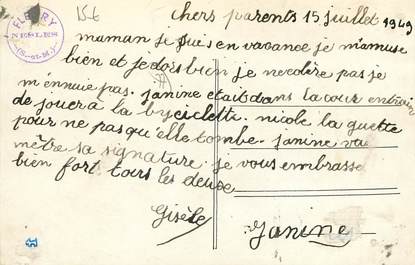 15€
chers parents 15 juillet 1949
FLEURY
(S.-et-M.)
maman je suis en vacance je m'amuse
bien et je dors bien je necolère pas je
m'ennuie pas. janine etait dans la cour entrain
de jouer a la byciclette. nicole la guette
pour ne pas qu'elle tombe. janine va
mètre sa signature. je vous embrasse
bien fort tous les deux
Gisèle
Janine